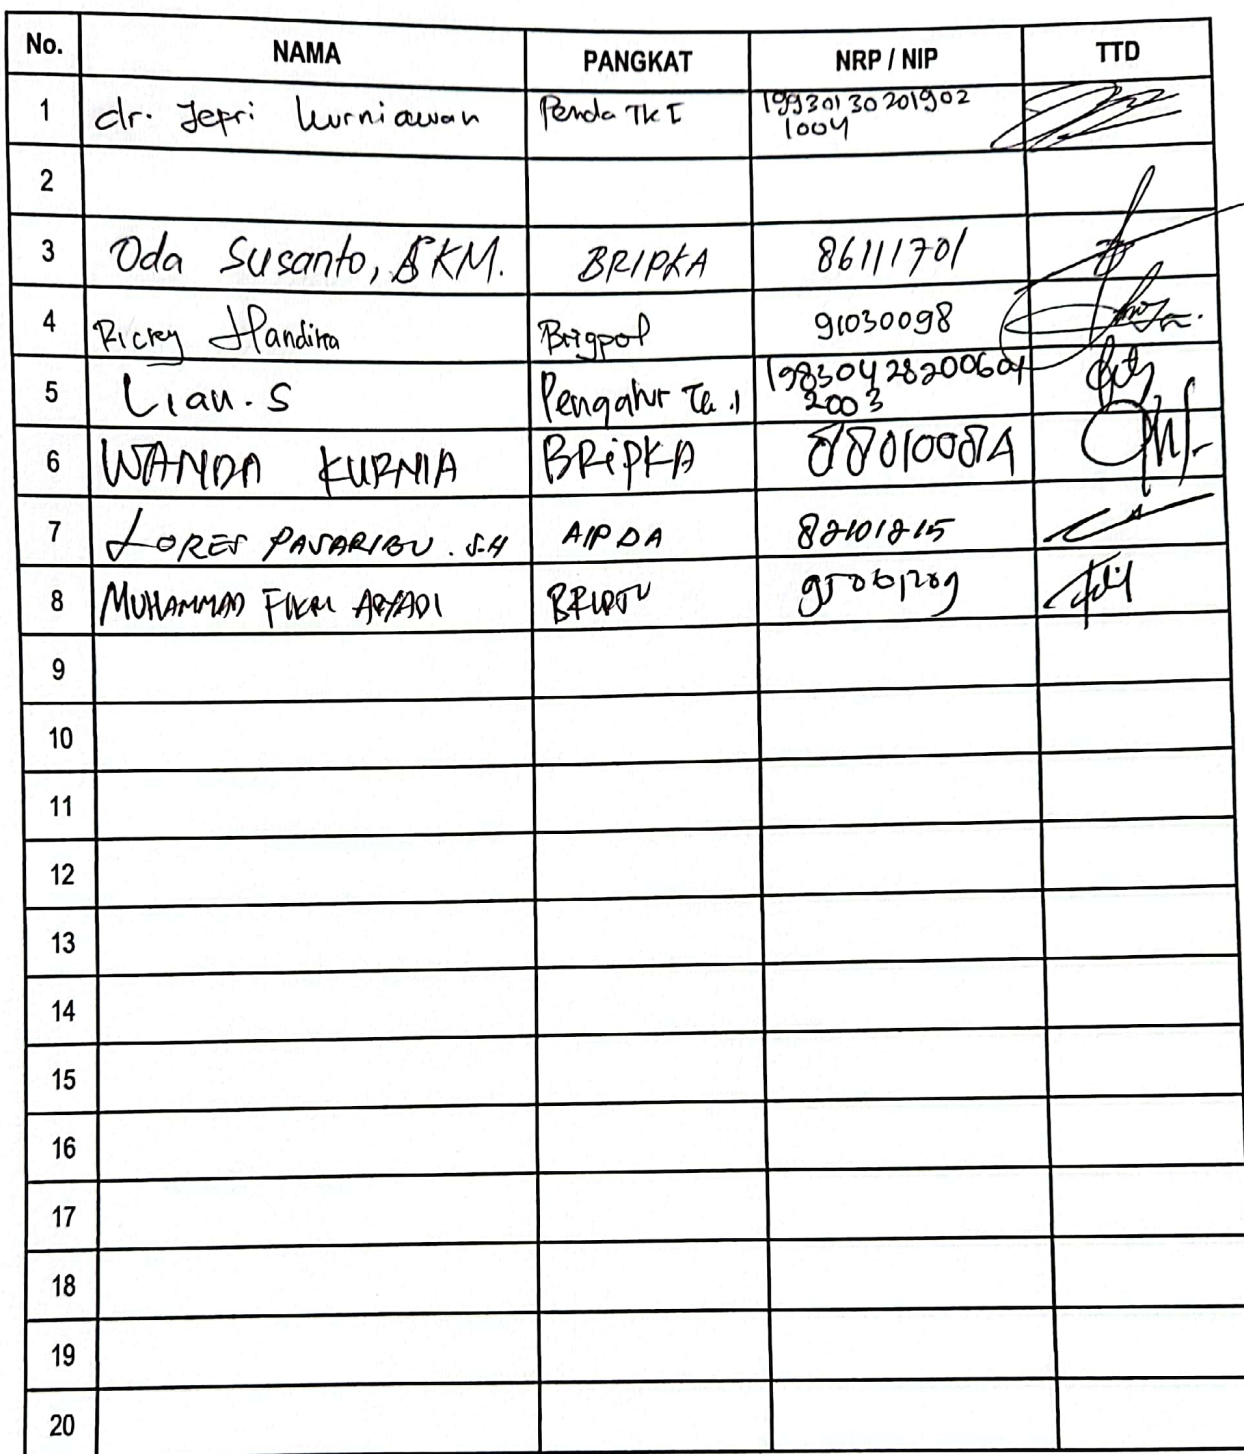 No. NAMA PANGKAT NRP / NIP TTD
1 dr. Jepri Kurniawan Penda Tk I 19930130201902
1004
2
3 Oda Susanto, SKM. BRIPKA 86111701
4 Ricky Handika Brigpol 91030098
5 Lian. S Pengatur Tk .1 19830428200604
2003
6 WANDA KURNIA BRIPKA 88010084
7 LORES PASARIBU . S.H AIPDA 82101215
8 MUHAMMAD FIKRI ARYADI BRIPTU 95061209
9
10
11
12
13
14
15
16
17
18
19
20